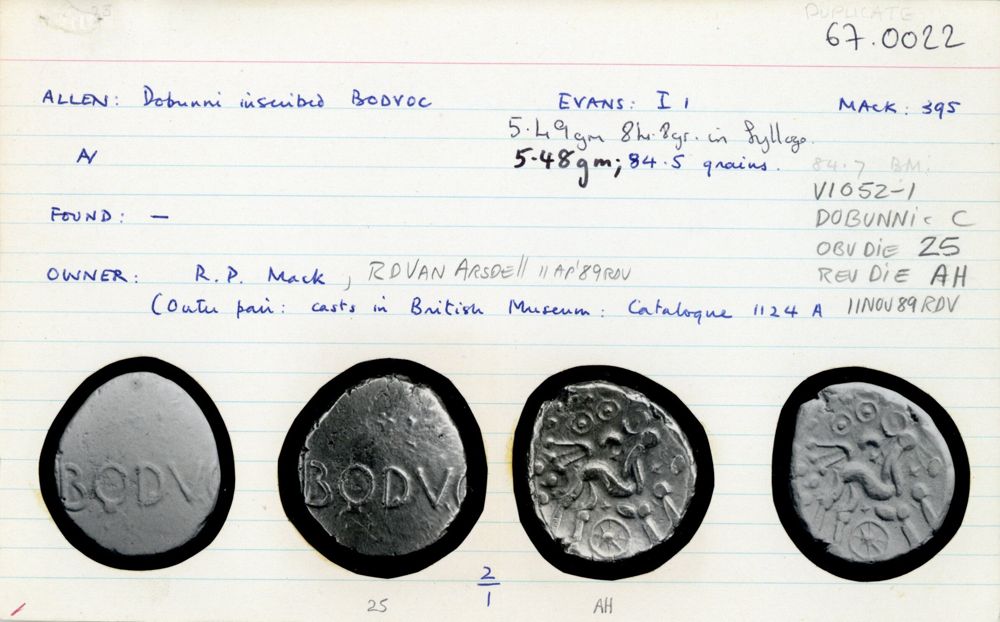 DUPLICATE
67.0022
ALLEN: Dobunni inscribed BODVOC EVANS: I 1 MACK: 395
5.49gm 8hr.8gr. in Sylloge.
AV 5.48gm; 84.5 grains. 84.7 BM.
V1052-1
FOUND: — DOBUNNIC C
OBV DIE 25
OWNER: R.P. Mack, RD VAN ARSDELL 11AP'89RDV REV DIE AH
(Outer pair: casts in British Museum: Catalogue 1124 A 11NOV89RDV
BODV BODV
2/1
25 AH